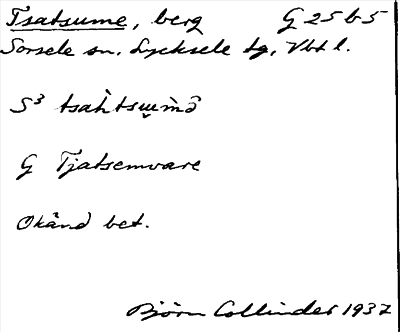 Tsatsume, berg G 25 b 5
Sorsele sn, Lycksele tg, Vbt l.
S³
G Tjatsemvare
Okänd bet.
Björn Collinder 1937